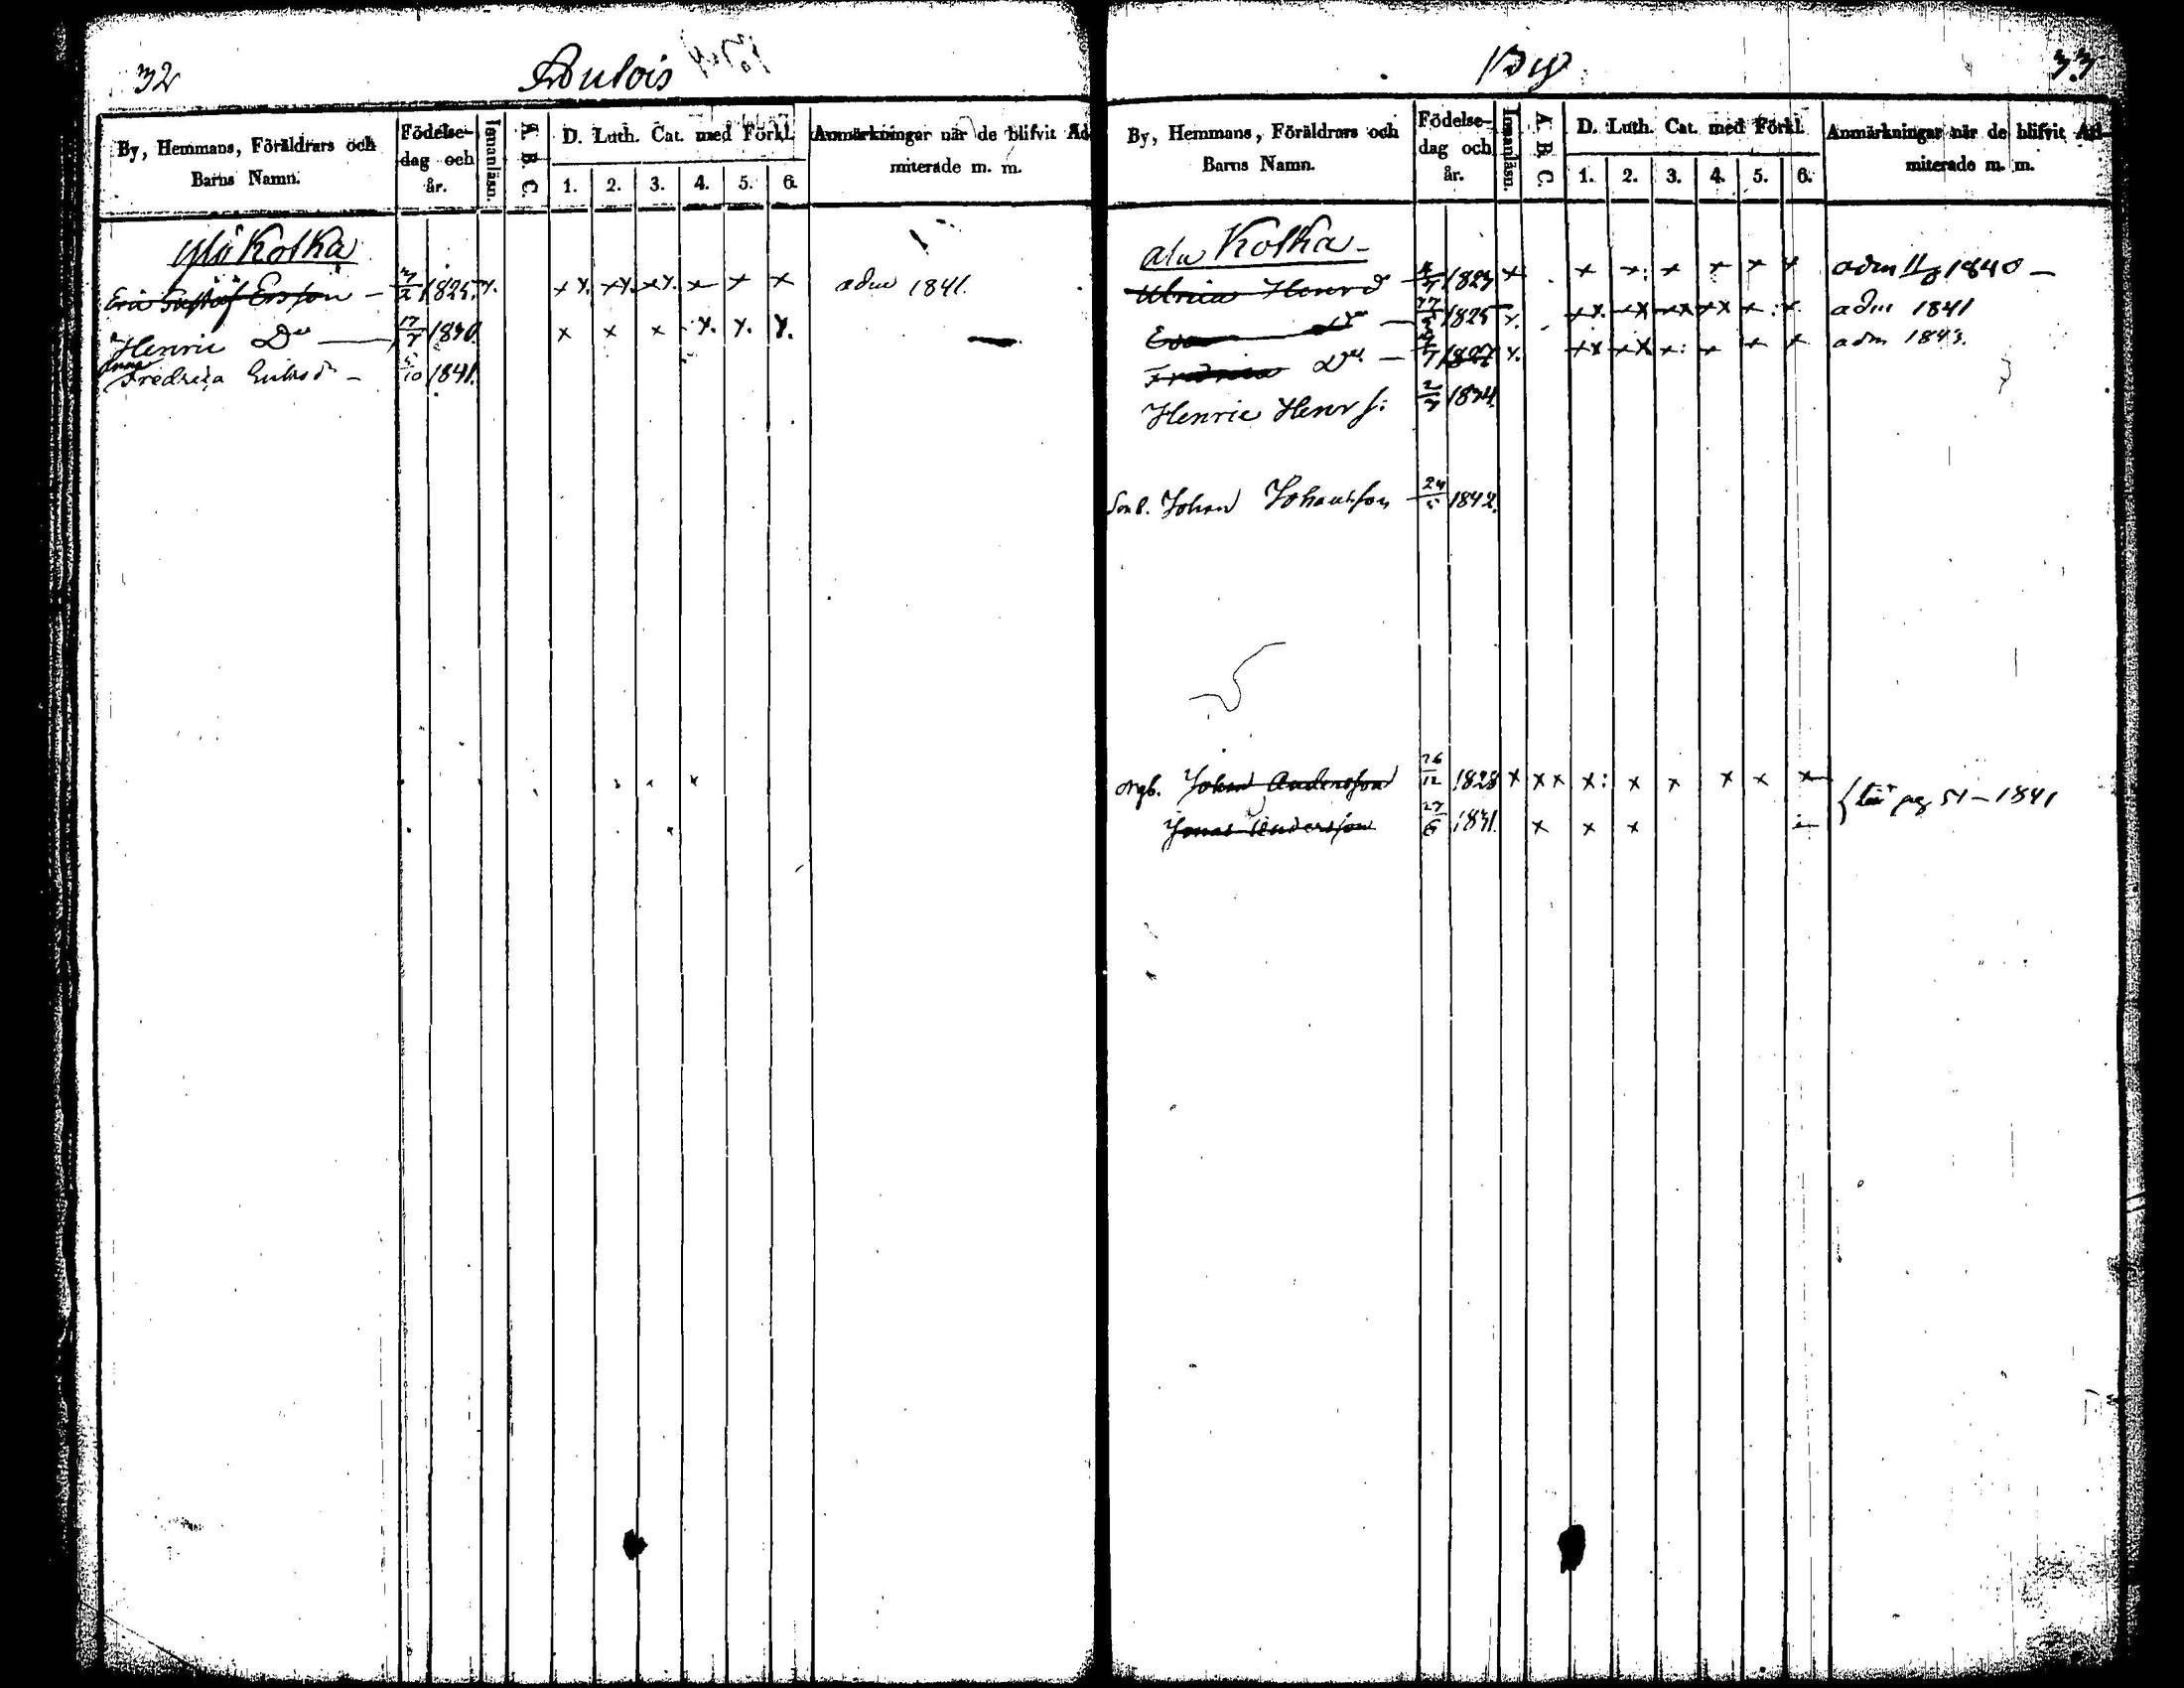 32
Aulois
By, Hemmans, Föräldrars och Barns Namn.
Födelse-dag och år.
Innanläsn.
A. B. C.
D. Luth. Cat. med Förkl.
1. 2. 3. 4. 5. 6.
Anmärkningar när de blifvit Admiterade m. m.
Ylä Kotka
Eric Gustaf Ersson – 1825 x. x x. x x. x x. x x x adm 1841.
Henric Do — 17/7 1830. x x x x. x. x.
Anna
Fredrica Ericsd – 5/10 1841.
By
33
By, Hemmans, Föräldrars och Barns Namn.
Födelse-dag och år.
Innanläsn.
A. B. C.
D. Luth. Cat. med Förkl.
1. 2. 3. 4. 5. 6.
Anmärkningar när de blifvit Admiterade m. m.
Ala Kotka –
Ulrica Henr d 1823 x x x: x x x x adm 1840 –
Eva 1825 x. x x. x x x x x x x: x. adm 1841
Fredrica Do – 1827 x. x x x x x: x x x adm 1843.
Henric Henr s: 2/3 1834.
Johan Johansson 24/5 1842.
Johan Andersson 26/12 1828 x x x x: x x x x x
Jonas Andersson 27/6 1831. x x x
pag 51 – 1841